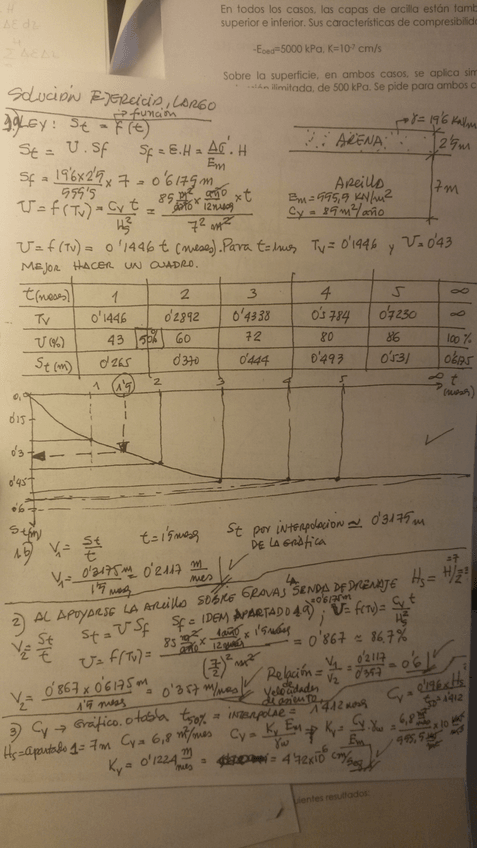 En todos los casos, las capas de arcilla están tamb
superior e inferior. Sus características de compresibilida
-Eoed=5000 kPa, K=10-7 cm/s
Sobre la superficie, en ambos casos, se aplica sim
ilimitada, de 500 kPa. Se pide para ambos c
SOLUCIÓN EJERCICIO, LARGO
LEY: St = f(t) → función
St = U . Sf   Sf = E.H = Δσ' / Em . H
Sf = 19'6×2'5 / 555'5 × 7 = 0'6175 m
U = f(Tv) = Cv t / Hs² = 85 m²/año × año/12 meses × t / 7² m²
γ = 19'6 KN/m
ARENA
2'5m
ARCILLA
Em = 555,5 KN/m²
Cv = 85 m²/año
7m
U = f(Tv) = 0'1446 t (meses). Para t=1mes Tv = 0'1446 y U = 0'43
MEJOR HACER UN CUADRO.
t (meses) 1 2 3 4 5 ∞
Tv 0'1446 0'2892 0'4338 0'5784 0'7230 ∞
U (%) 43 50% 60 72 80 86 100%
St (m) 0'265 0'370 0'444 0'493 0'531 0'6175
0,0 1 1'5 2 3 4 5 ∞ t (meses)
0'15
0'3
0'45
0'6
St (m)
1b) V1 = St / t   t = 1'5 meses   St por INTERPOLACION ≃ 0'3175 m
DE LA GRÁFICA
V1 = 0'3175 m / 1'5 meses = 0'2117 m/mes
2) AL APOYARSE LA ARCILLA SOBRE GRAVAS LA SENDA DE DRENAJE Hs = H/2
V2 = St / t   St = U Sf   Sf = IDEM APARTADO 1a) = 0'6175m ; U = f(Tv) = Cv t / Hs²
U = f(Tv) = 85 m²/año × 1año/12meses × 1'5 meses / (7/2)² m² = 0'867 ≃ 86,7%
V2 = 0'867 × 0'6175 m / 1'5 mes = 0'357 m/mes   Relación de velocidades de asiento = V1 / V2 = 0'2117 / 0'357 = 0'6
3) Cv → Gráfico o tabla t50% = INTERPOLAR = 1'412 meses   Cv = 0'196 × Hs / t50 = 1'412
Hs = apartado 1 = 7m   Cv = 6,8 m²/mes   Cv = Kv Em / γw   Kv = Cv / Em γw = 6,8 / 555,5 × 10
Kv = 0'1224 m/mes = 4'72×10-6 cm/seg
ientes resultados: